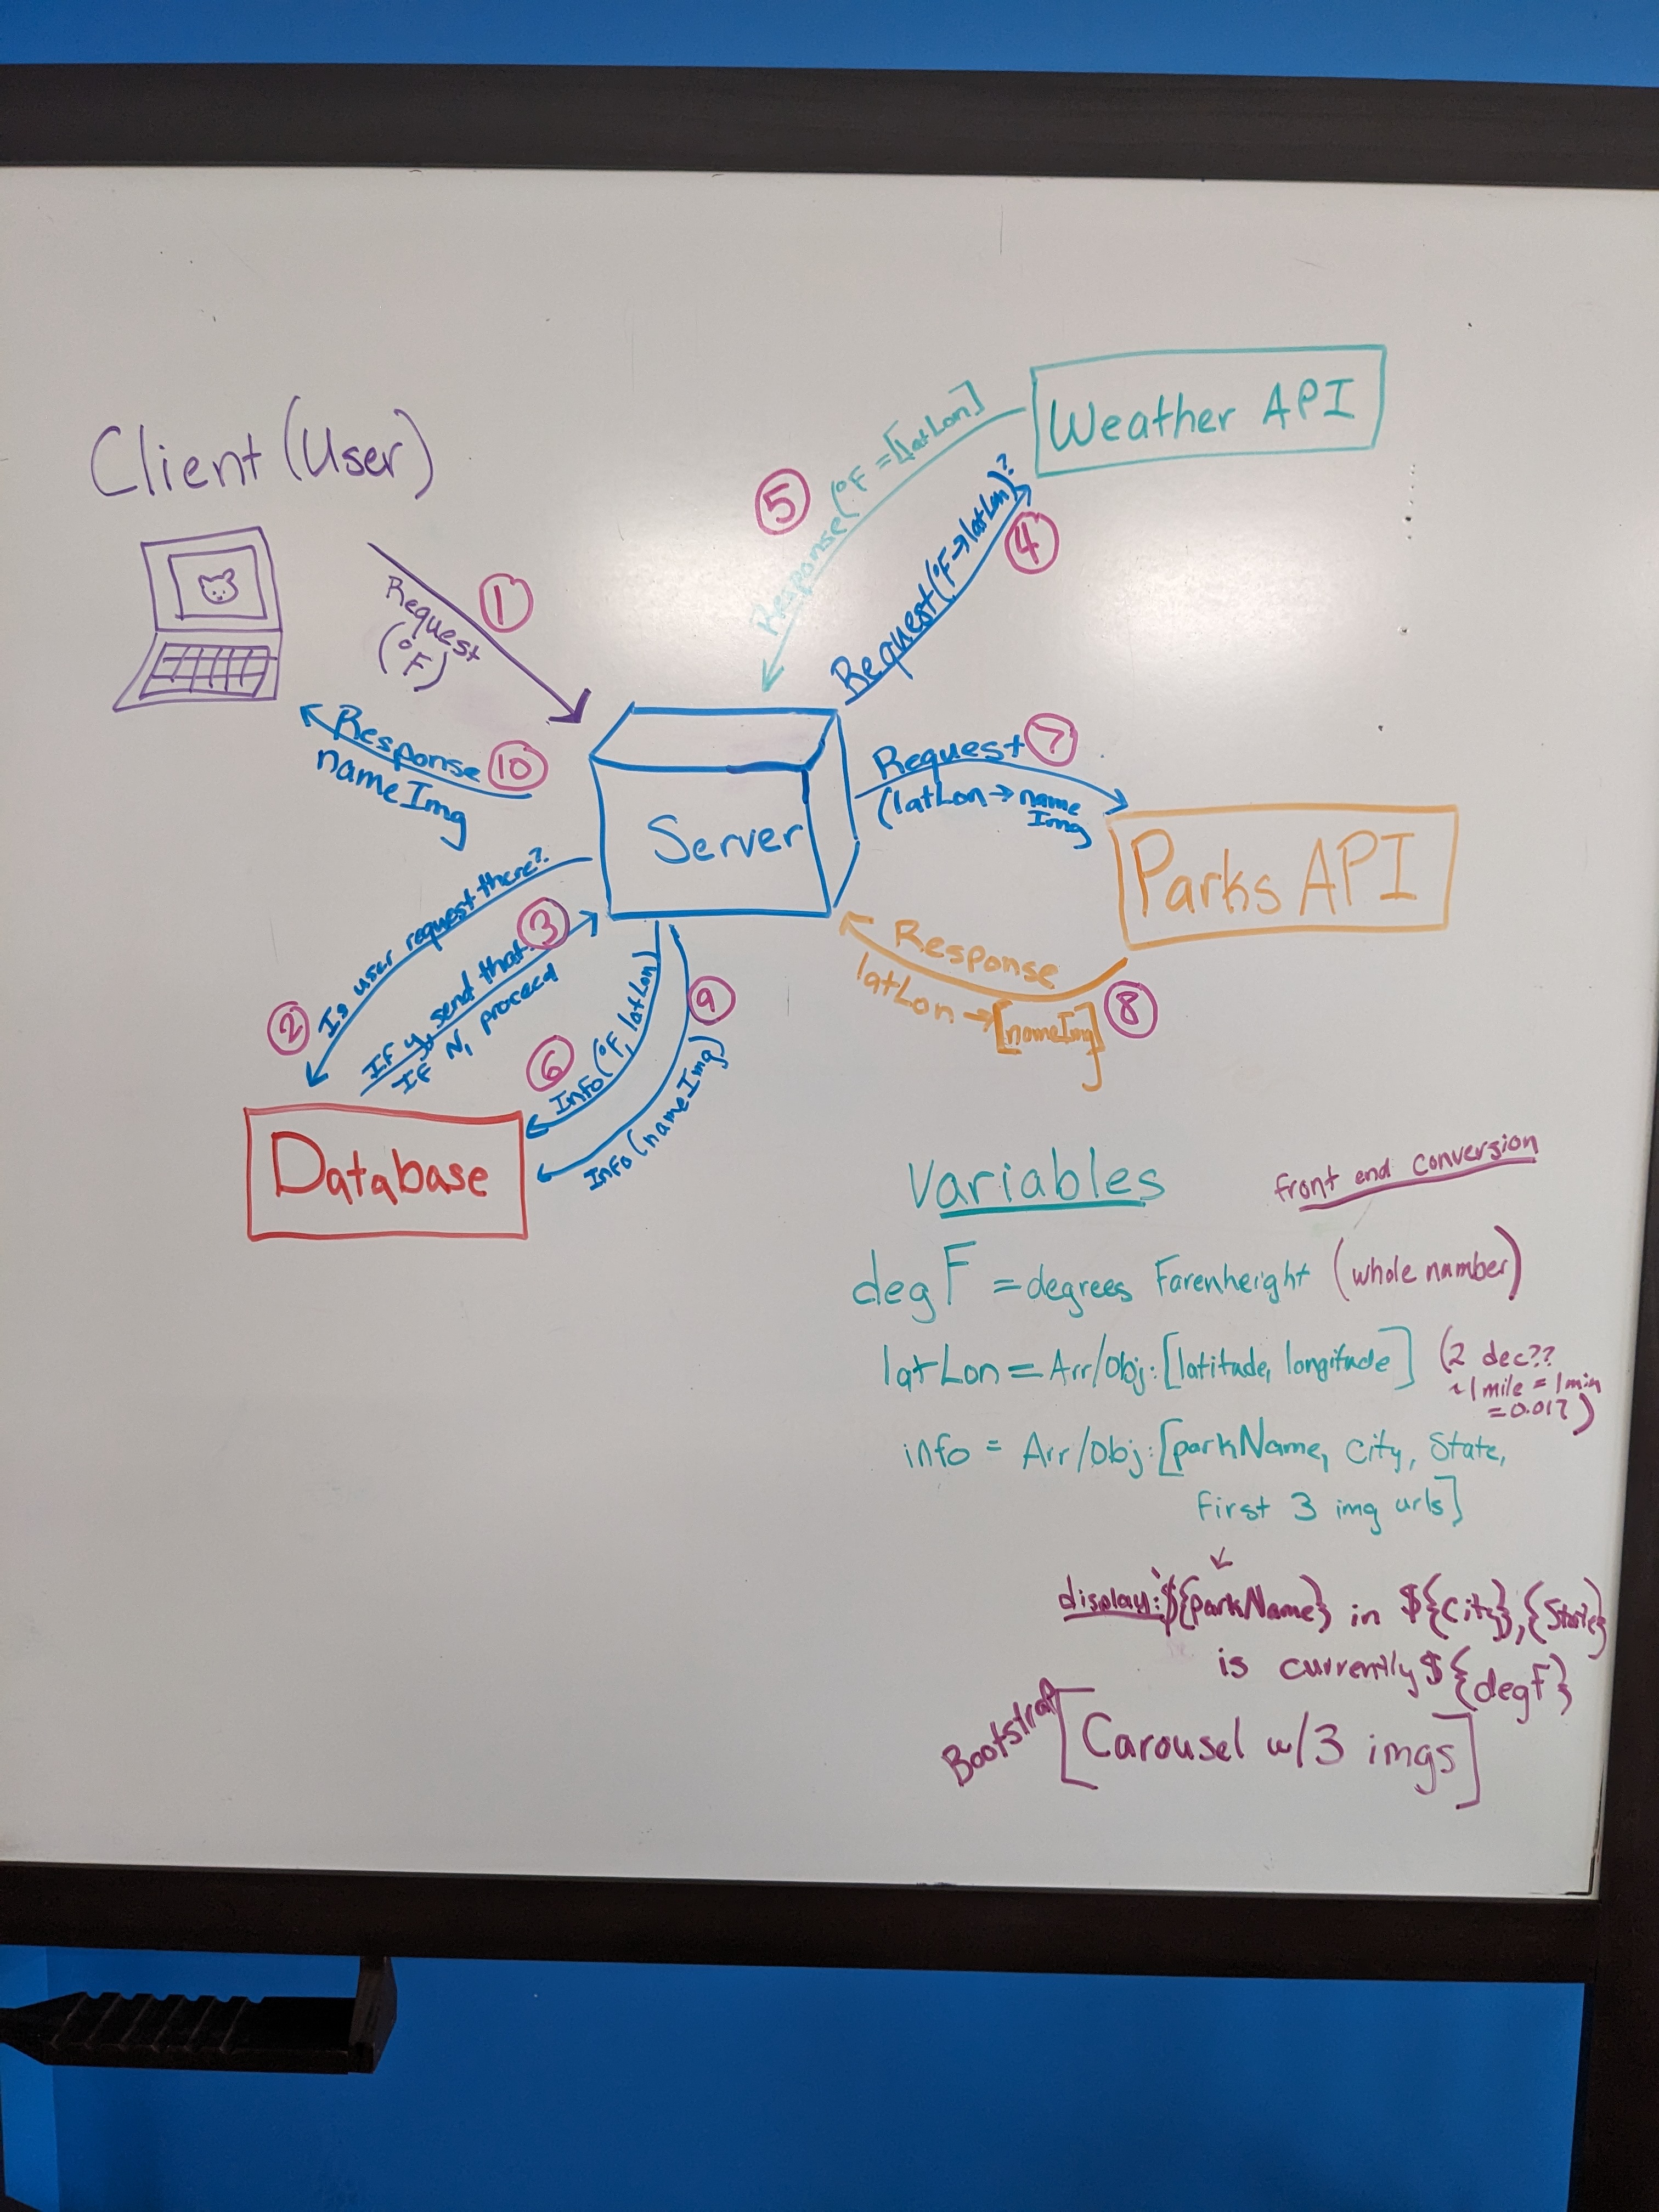 Client (User)
Weather API
5
Response (°F = [latLon]
Request (°F → latLon)?
4
1
Request
(°F)
Response
10
nameImg
Server
Request
7
(latLon → name
Img
Parks API
Response
latLon → [nameImg]
8
2
Is user request there?
3
If y, send that
If N, proceed
6
Info (°F, latLon)
9
Info (nameImg)
Database
Variables
front end conversion
degF = degrees Farenheight (whole number)
latLon = Arr/Obj: [latitude, longitude] (2 dec??
~1 mile = 1 min
= 0.017)
info = Arr/Obj: [parkName, City, State,
First 3 img urls]
display: `${parkName} in ${City}, {State}
is currently ${degF}
Bootstrap [Carousel w/3 imgs]